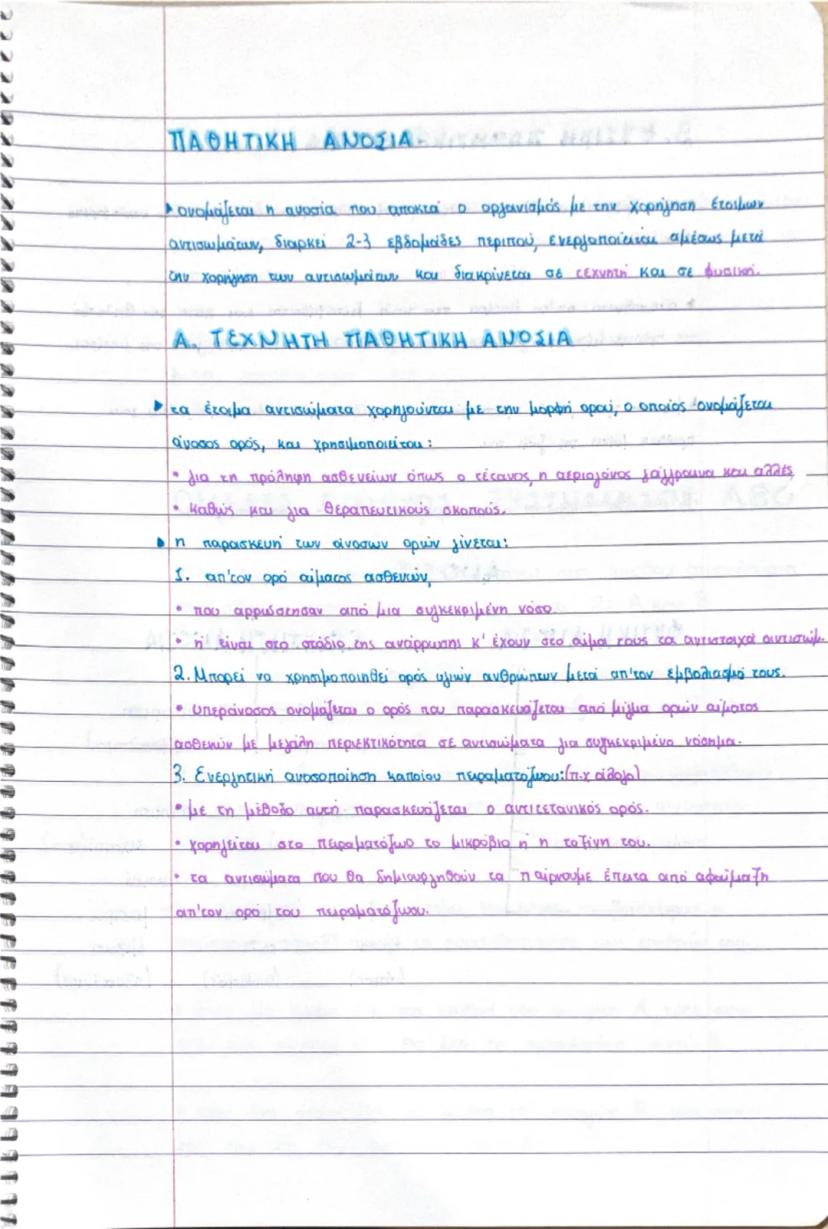 ΠΑΘΗΤΙΚΗ ΑΝΟΣΙΑ.
▸ ονομάζεται η ανοσία που αποκτά ο οργανισμός με την χορήγηση έτοιμων
αντισωμάτων, διαρκεί 2-3 εβδομάδες περίπου, ενεργοποιείται αμέσως μετά
την χορήγηση των αντισωμάτων και διακρίνεται σε τεχνητή και σε φυσική.
Α. ΤΕΧΝΗΤΗ ΠΑΘΗΤΙΚΗ ΑΝΟΣΙΑ
▸ τα έτοιμα αντισώματα χορηγούνται με την μορφή ορού, ο οποίος ονομάζεται
άνοσος ορός, και χρησιμοποιείται:
• για τη πρόληψη ασθενειών όπως ο τέτανος, η αεριογόνος γάγγραινα και άλλες
• καθώς και για θεραπευτικούς σκοπούς.
▸ η παρασκευή των άνοσων ορών γίνεται:
1. απ'τον ορό αίματος ασθενών,
• που αρρώστησαν από μια συγκεκριμένη νόσο
• ή είναι στο στάδιο της ανάρρωσης κ' έχουν στο αίμα τους τα αντίστοιχα αντισώμ.
2. Μπορεί να χρησιμοποιηθεί ορός υγιών ανθρώπων μετά απ'τον εμβολιασμό τους.
• υπεράνοσος ονομάζεται ο ορός που παρασκευάζεται από μίγμα ορών αίματος
ασθενών με μεγάλη περιεκτικότητα σε αντισώματα για συγκεκριμένο νόσημα.
3. Ενεργητική ανοσοποίηση κάποιου πειραματόζωου: (π.χ άλογο)
• με τη μέθοδο αυτή παρασκευάζεται ο αντιτετανικός ορός.
• χορηγείται στο πειραματόζωο το μικρόβιο ή η τοξίνη του.
• τα αντισώματα που θα δημιουργηθούν τα παίρνουμε έπειτα από αφαίμαξη
απ'τον ορό του πειραματόζωου.